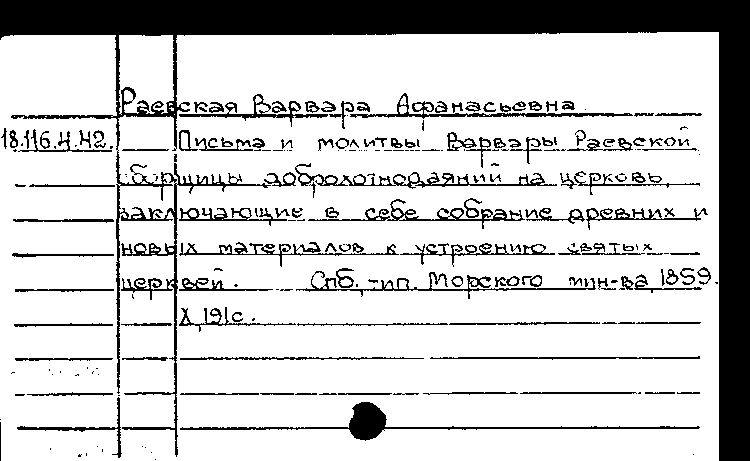 Раевская, Варвара Афанасьевна
18.116.4.42. Письма и молитвы Варвары Раевской,
сборщицы доброхотнодаяний на церковь,
заключающие в себе собрание древних и
новых материалов к устроению святых
церквей. Спб., тип. Морского мин-ва, 1859.
X, 191с.